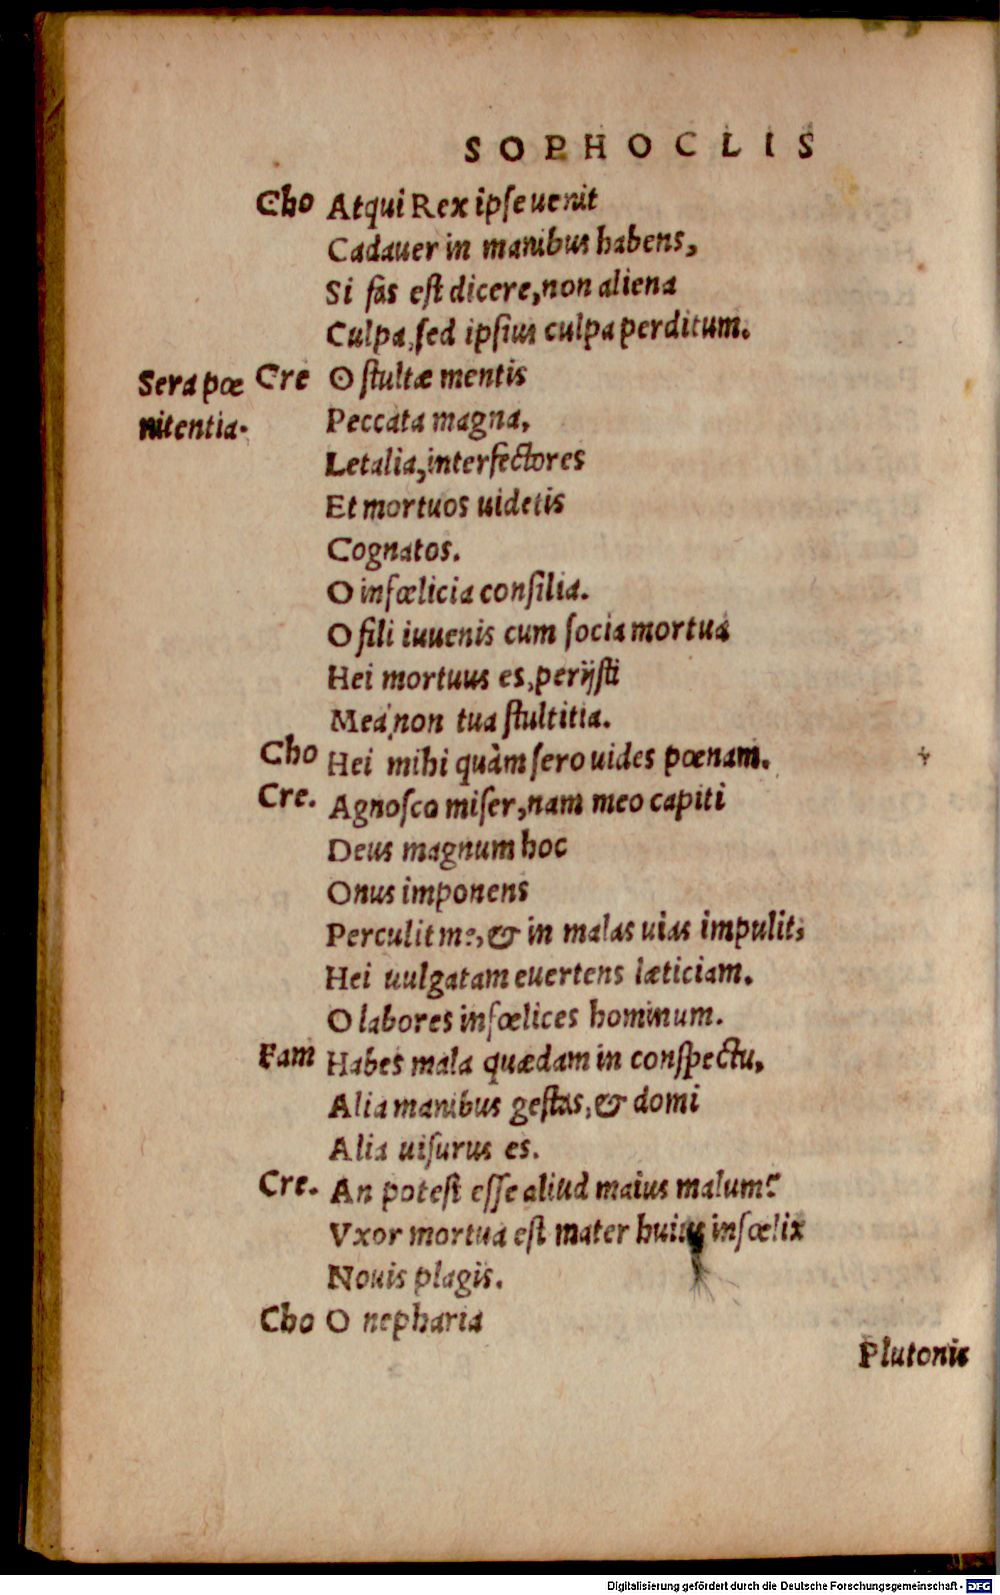 SOPHOCLIS
Cho Atqui Rex ipſe uenit
Cadauer in manibus habens,
Si fas eſt dicere, non aliena
Culpa, ſed ipſius culpa perditum.
Sera pœ Cre O ſtultæ mentis
nitentia. Peccata magna,
Letalia, interfectores
Et mortuos uidetis
Cognatos.
O infœlicia conſilia.
O fili iuuenis cum ſocia mortua
Hei mortuus es, perijſti
Mea, non tua ſtultitia.
Cho Hei mihi quàm ſero uides pœnam.
Cre. Agnoſco miſer, nam meo capiti
Deus magnum hoc
Onus imponens
Perculit me, & in malas uias impulit,
Hei uulgatam euertens læticiam.
O labores infœlices hominum.
Fam Habes mala quædam in conſpectu,
Alia manibus geſtas, & domi
Alia uiſurus es.
Cre. An poteſt eſſe aliud maius malum?
Vxor mortua eſt mater huius infœlix
Nouis plagis.
Cho O nepharia
Plutonis
Digitalisierung gefördert durch die Deutsche Forschungsgemeinschaft - DFG